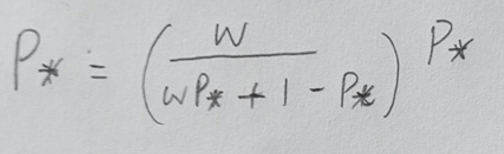 P* = (w / (wP* + 1 - P*)) P*